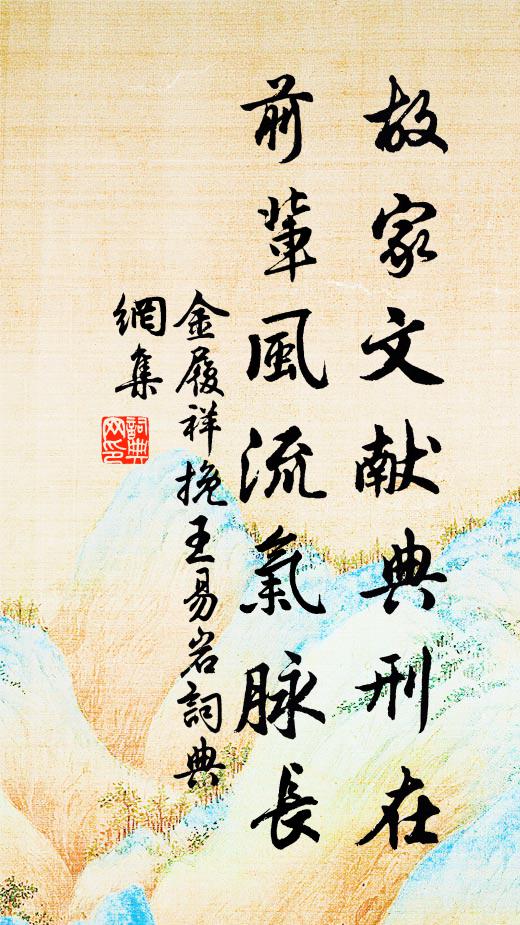 故家文献典刑在
前輩風流氣脉長
金履祥挽王易岩詞典
網集
詞典
网印